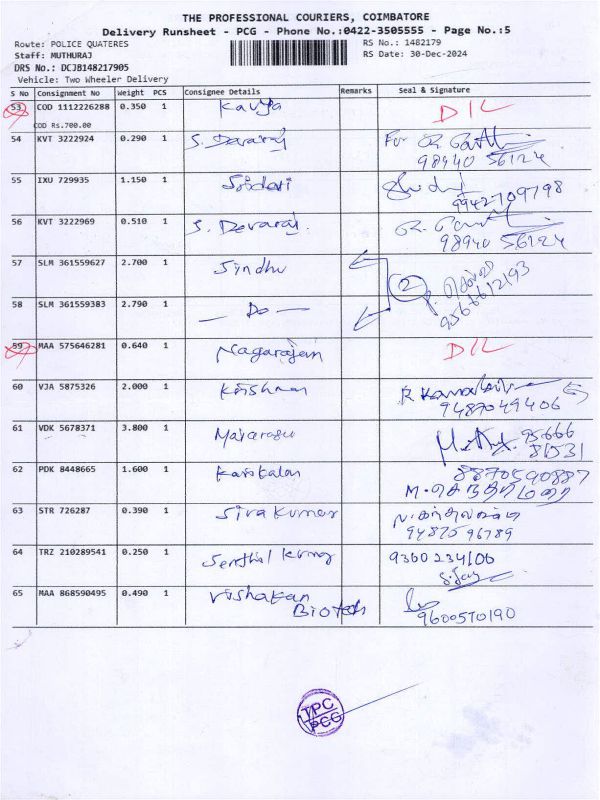 THE PROFESSIONAL COURIERS, COIMBATORE
Delivery Runsheet - PCG - Phone No.:0422-3505555 - Page No.:5
Route: POLICE QUATERES RS No.: 1482179
Staff: MUTHURAJ RS Date: 30-Dec-2024
DRS No.: DCJB148217905
Vehicle: Two Wheeler Delivery
S No Consignment No Weight PCS Consignee Details Remarks Seal & Signature
53 COD 1112226288 0.350 1 Kavya DIL
COD Rs.700.00
54 KVT 3222924 0.290 1 S. Devaraj For
98940 56124
55 IXU 729935 1.150 1 Sridevi
9942709798
56 KVT 3222969 0.510 1 S. Devaraj.
98940 56124
57 SLM 361559627 2.700 1 Sindhu
2
9566612193
58 SLM 361559383 2.790 1 — Do —
59 MAA 575646281 0.640 1 Nagarajan DIL
60 VJA 5875326 2.000 1 Krishnan
9487049406
61 VDK 5678371 3.800 1 Maharasu 95666
81531
62 PDK 8448665 1.600 1 Karikalan 8870590887
M. செந்தாமரை
63 STR 726287 0.390 1 Siva Kumar
9487596789
64 TRZ 210289541 0.250 1 Senthil Kumar 9360234106
65 MAA 868590495 0.490 1 Vrishakan
Biotech 9600570190
TPC
PCG